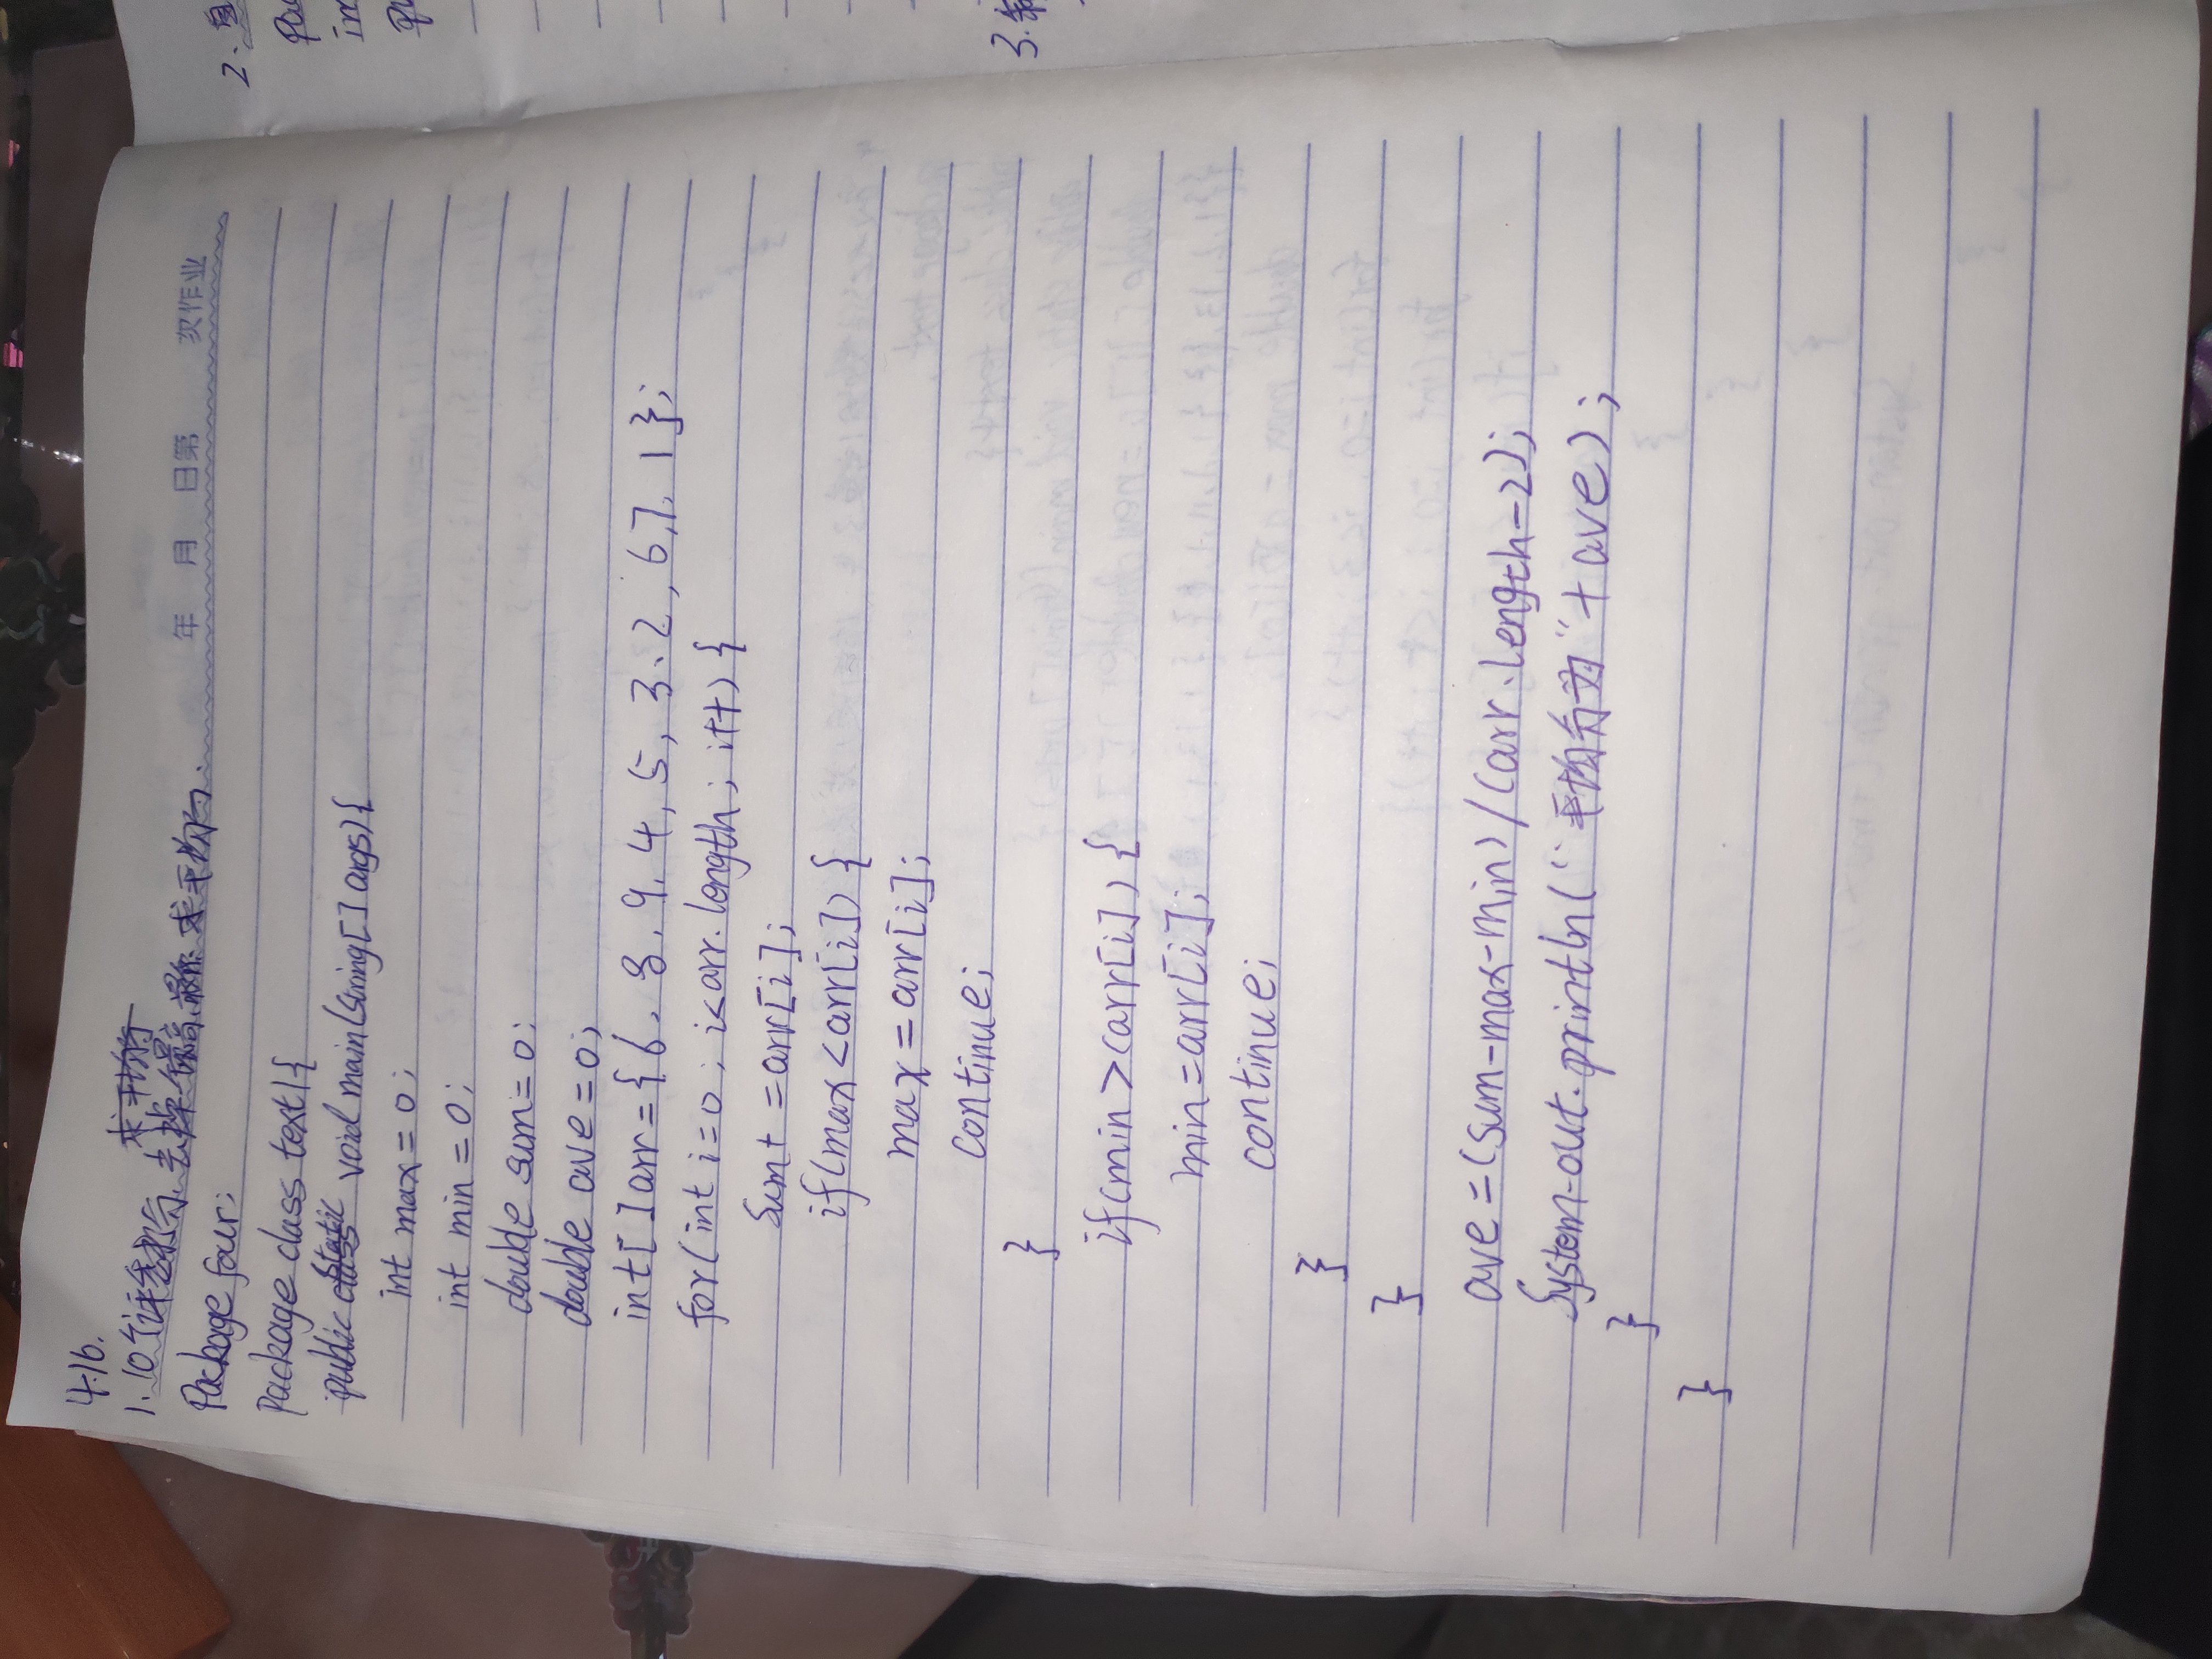 4.16.
求平均
1.10个评委打分 去掉最高最低 求平均.
年 月 日第 次作业
Package four;
Package class text1{
public static void main(string[]args){
int max=0;
int min=0;
double sum=0;
double ave=0;
int[]arr={6,8,9,4,5,3,2,6,7,1};
for(int i=0;i<arr.length;i++){
Sum+=arr[i];
if(max<arr[i]){
max=arr[i];
continue;
}
if(min>arr[i]){
min=arr[i];
continue;
}
}
ave=(sum-max-min)/(arr.length-2);
System.out.println("平均分为"+ave);
}
}
2.
3.